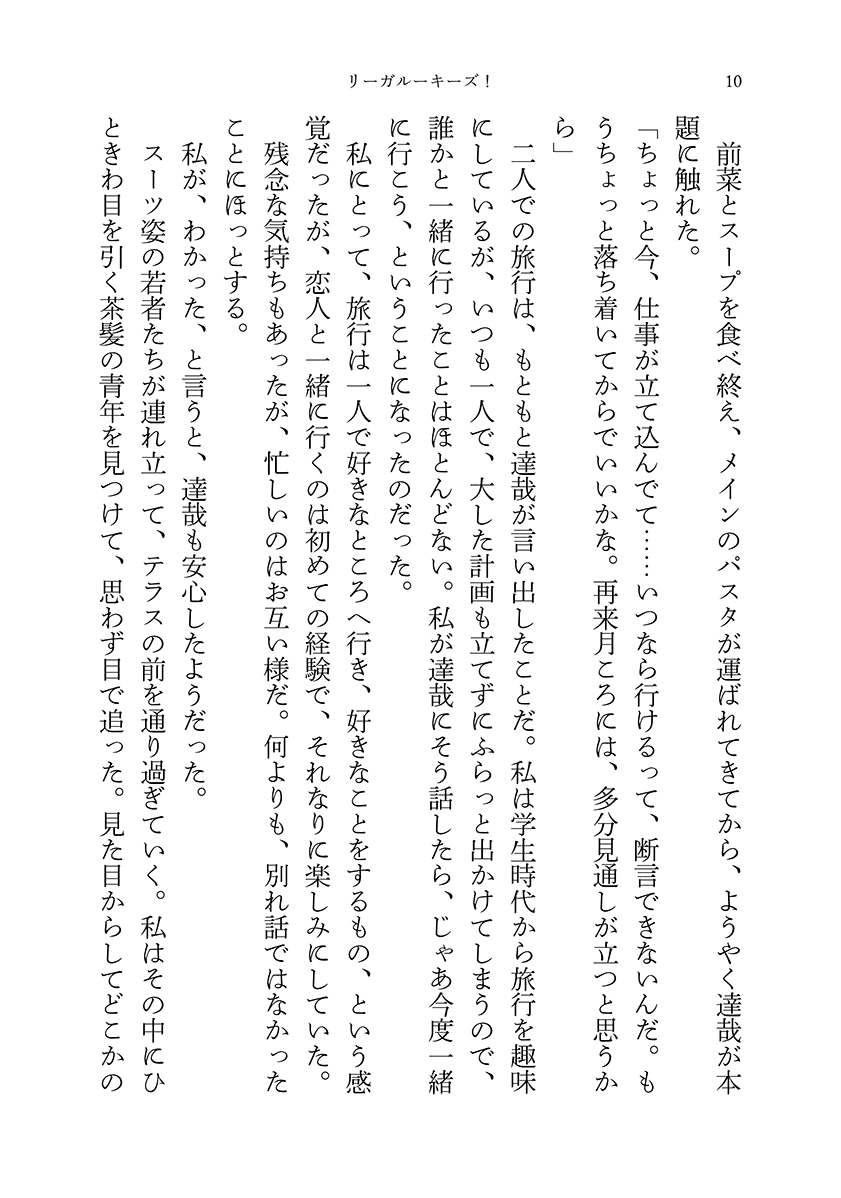 リーガルーキーズ！
10
前菜とスープを食べ終え、メインのパスタが運ばれてきてから、ようやく達哉が本
題に触れた。
「ちょっと今、仕事が立て込んでて……いつなら行けるって、断言できないんだ。も
うちょっと落ち着いてからでいいかな。再来月ころには、多分見通しが立つと思うか
ら」
二人での旅行は、もともと達哉が言い出したことだ。私は学生時代から旅行を趣味
にしているが、いつも一人で、大した計画も立てずにふらっと出かけてしまうので、
誰かと一緒に行ったことはほとんどない。私が達哉にそう話したら、じゃあ今度一緒
に行こう、ということになったのだった。
私にとって、旅行は一人で好きなところへ行き、好きなことをするもの、という感
覚だったが、恋人と一緒に行くのは初めての経験で、それなりに楽しみにしていた。
残念な気持ちもあったが、忙しいのはお互い様だ。何よりも、別れ話ではなかった
ことにほっとする。
私が、わかった、と言うと、達哉も安心したようだった。
スーツ姿の若者たちが連れ立って、テラスの前を通り過ぎていく。私はその中にひ
ときわ目を引く茶髪の青年を見つけて、思わず目で追った。見た目からしてどこかの